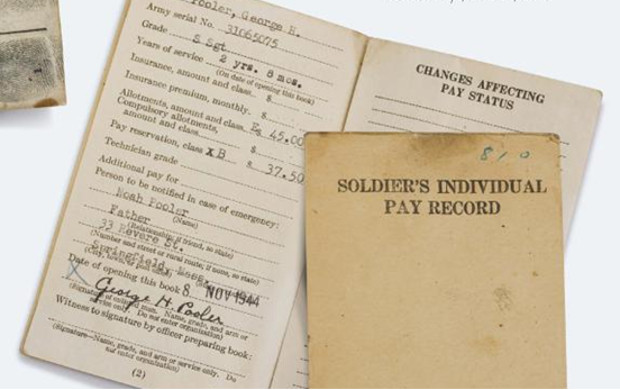 Pooler, George H.
Army serial No. 31065075
Grade S Sgt.
Years of service 2 yrs. 8 mos.
(On date of opening this book)
Insurance, amount and class $
Insurance premium, monthly. $
Allotments, amount and class E$ 45.00
Compulsory allotments,
amount and class $
Pay reservation, class XB $ 37.50
Technician grade
Additional pay for
Person to be notified in case of emergency:
Noah Pooler
(Name)
Father
(Relationship; if friend, so state)
33 Revere St.
(Number and street or rural route; if none, so state)
Springfield, Mass.
Date of opening this book 8 NOV 1944
X George H. Pooler
(Signature of enlisted man. Name, grade, and arm or
service only. Do not enter organization)
Witness to signature by officer preparing book:
(Signature—Name, grade, and arm or service only. Do
not enter organization)
(2)
CHANGES AFFECTING
PAY STATUS
SOLDIER'S INDIVIDUAL
PAY RECORD